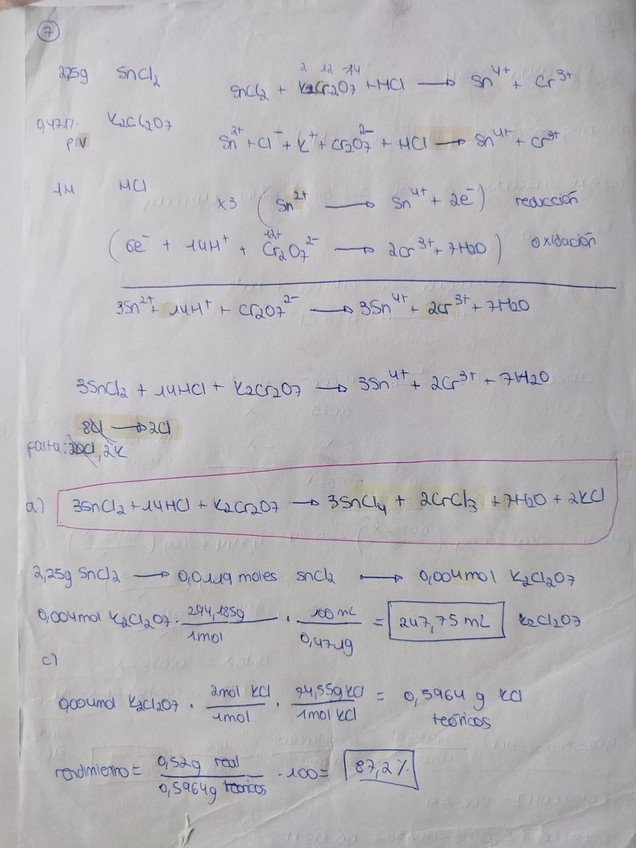 7
2,25g SnCl2
SnCl2 + K2Cr2O7 + HCl → Sn4+ + Cr3+
2 12 -14
0,471% K2Cl2O7
p/V
Sn2+ + Cl- + K+ + Cr2O7 2- + HCl → Sn4+ + Cr3+
1M HCl
x3 ( Sn2+ → Sn4+ + 2e- ) reducción
( 6e- + 14H+ + Cr2O7 2- → 2Cr3+ + 7H2O ) oxidación
12+
3Sn2+ + 14H+ + Cr2O7 2- → 3Sn4+ + 2Cr3+ + 7H2O
3SnCl2 + 14HCl + K2Cr2O7 → 3Sn4+ + 2Cr3+ + 7H2O
8Cl → 2Cl
falta: 20Cl, 2K
a) 3SnCl2 + 14HCl + K2Cr2O7 → 3SnCl4 + 2CrCl3 + 7H2O + 2KCl
2,25g SnCl2 → 0,0119 moles SnCl2 → 0,004mol K2Cl2O7
0,004mol K2Cl2O7 · 294,185g / 1mol · 100 mL / 0,471g = 247,75 mL K2Cl2O7
c)
0,004mol K2Cl2O7 · 2mol KCl / 1mol · 74,55g KCl / 1mol KCl = 0,5964 g KCl
teóricos
rendimiento = 0,52g real / 0,5964g teóricos · 100 = 87,2%